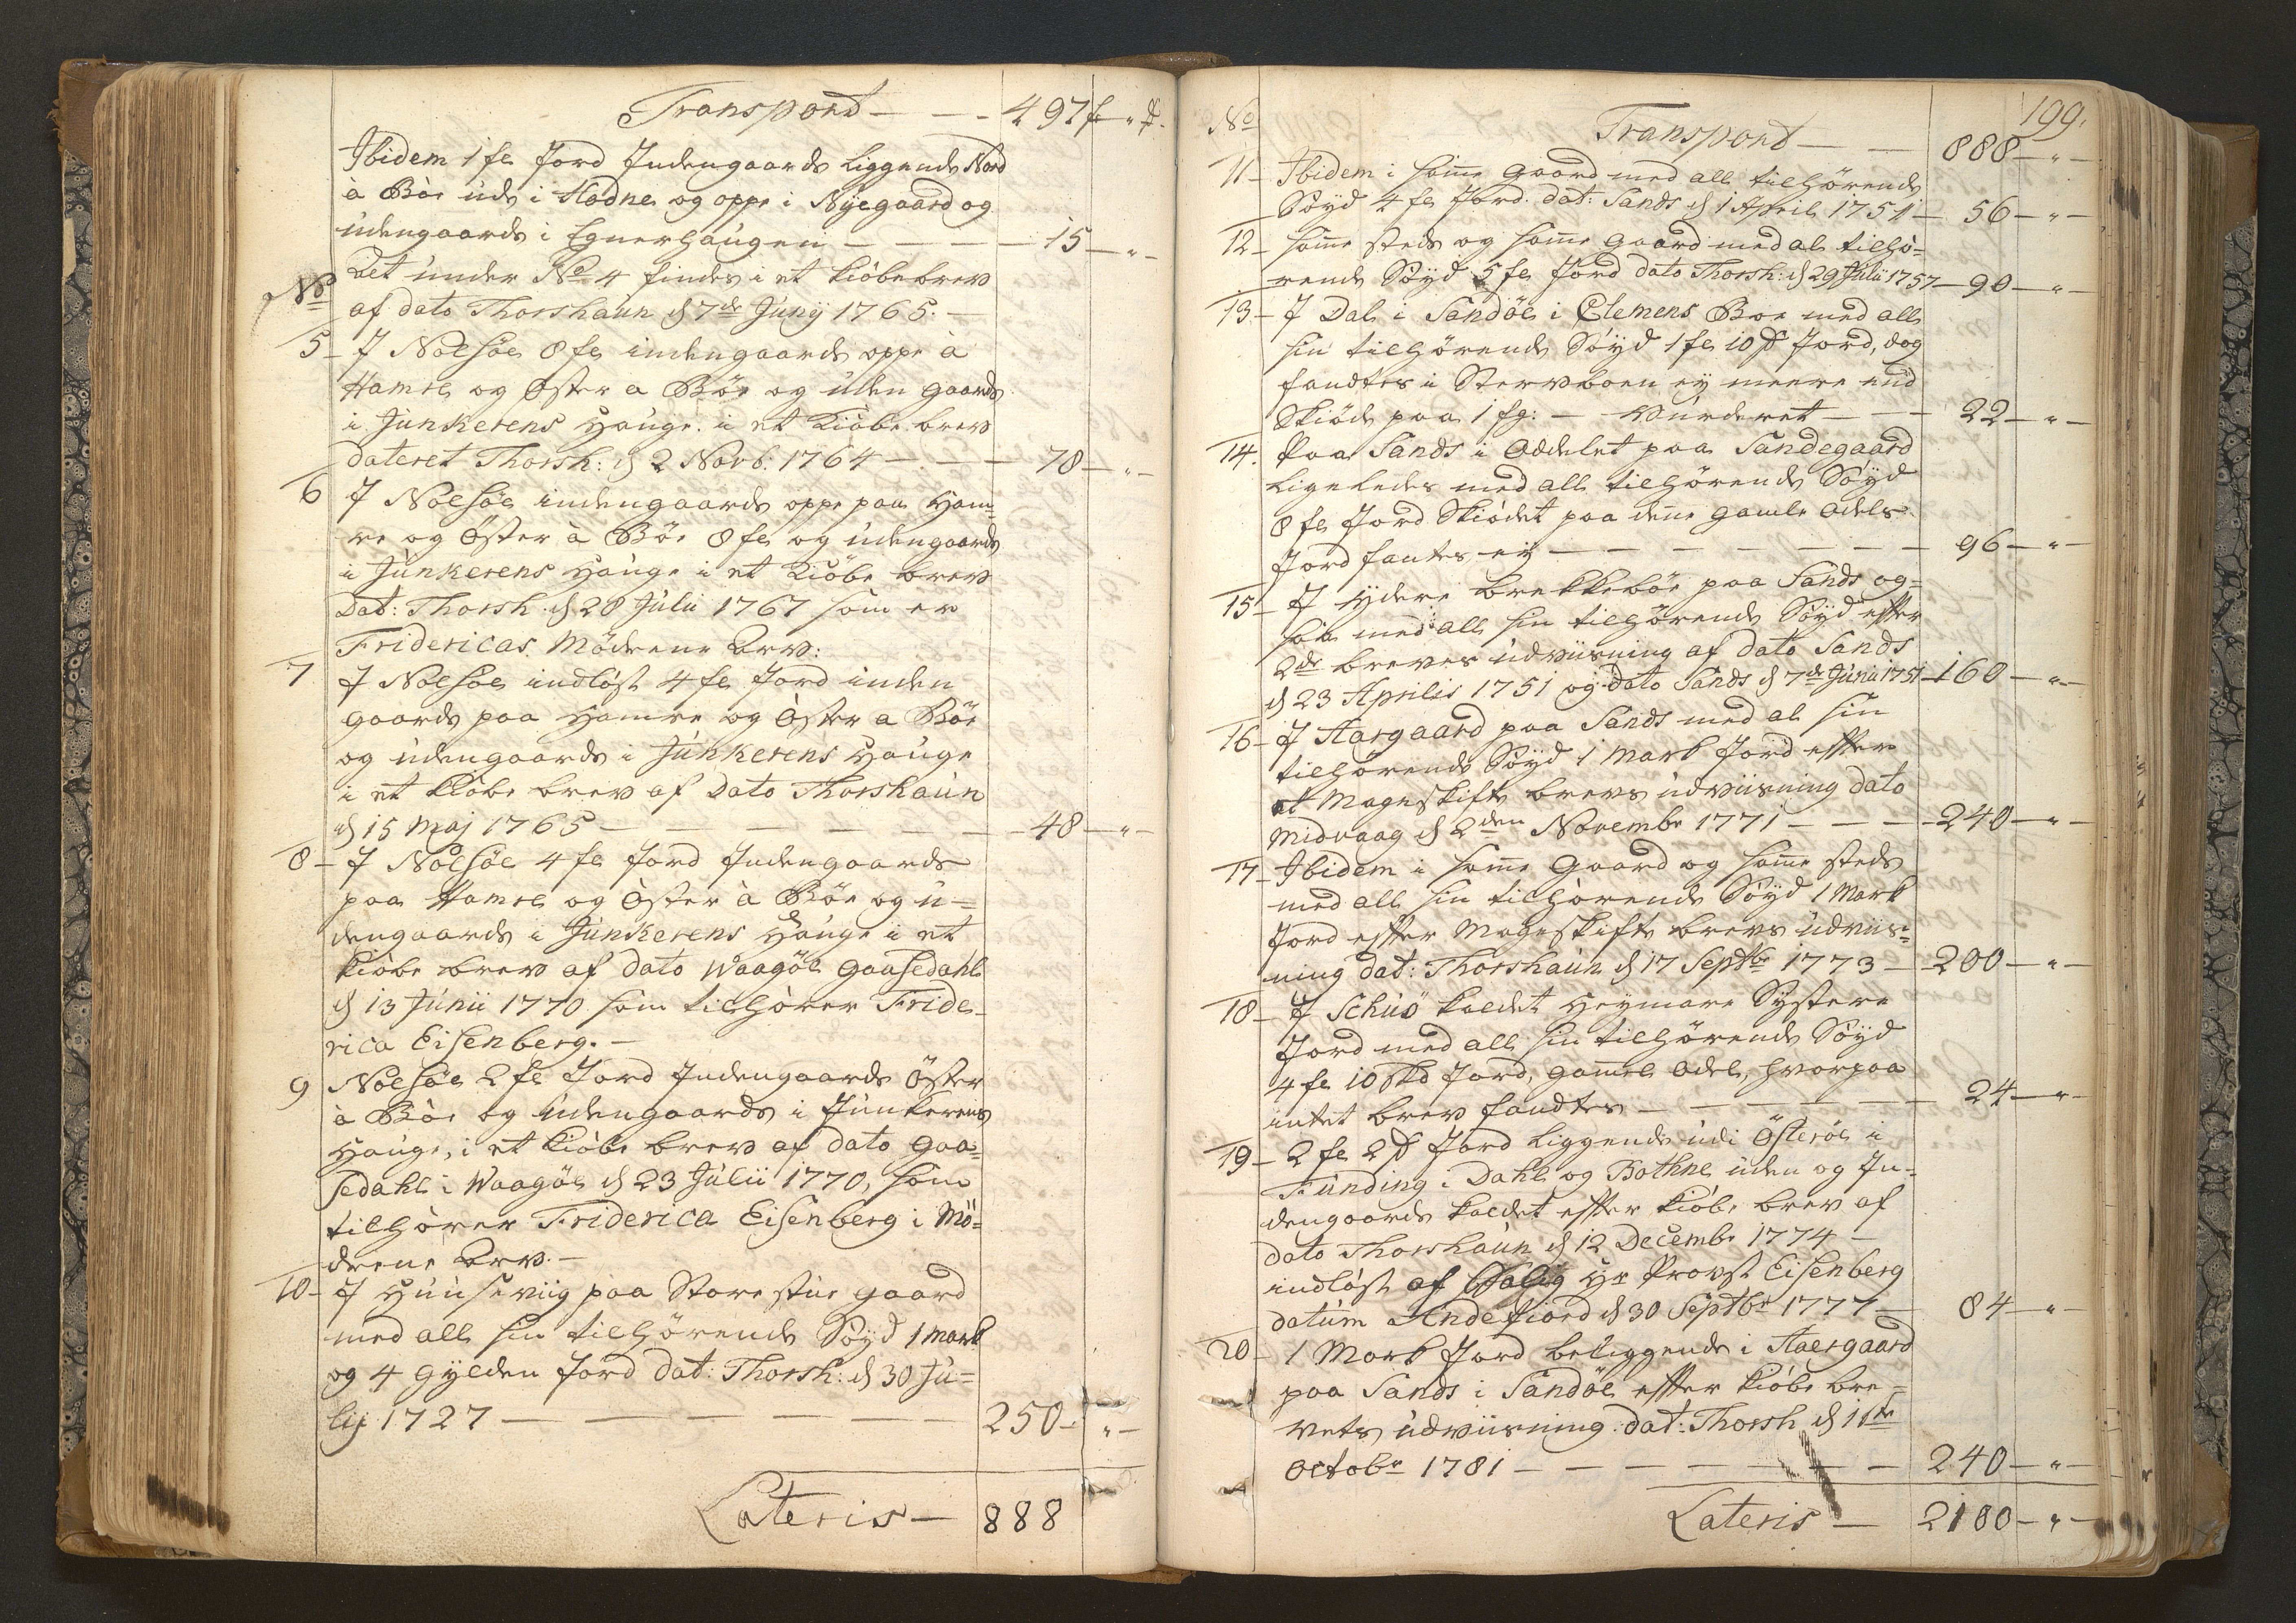 Transport — — - 497 f „ ß.
Ibidem 1 fl Jord Indengaards liggende Nord
à Böe uds i Hadne og oppe i Nÿegaard og
udengaards i Egnerhaugen — — — 15 — „ —
Det under No 4 findes i et kiöbebrev
No
af dato Thorshaun d 7de Junÿ 1765. —
5 — I Nolsöe 8 fl indengaards oppe à
Hamre og Öster a Böe og uden gaards
i Junkerens Hauge i et Kiöbe brev
dateret Thorsh: d 2 Novb: 1764 — — — 78 — „ —
6 I Nolsöe indengaards oppe paa Ham-
re og Öster à Böe 8 fl og udengaards
i Junkerens Hauge i et Kiöbe brev
Dat: Thorsh. d 28 Julii 1767 som er
Fridericas Mödrene Arv:
7 I Nolsöe indlöst 4 fl Jord inden
gaards paa Hamre og Öster a Böe
og udengaards i Junkerens Hauge
i et Kiöbe brev af Dato Thorshaun
d 15 Maj 1765 — — — — — — 48 — „ —
8 — I Nolsöe 4 fl Jord Indengaards
paa Hamre og Öster à Böe og u=
dengaards i Junkerens Hauge i et
Kiöbe brev af dato Waagöe Gaasedahl
d 13 Junii 1770 som tilhörer Fride-
rica Eisenberg. —
9 Nolsöe 2 fl Jord Indengaards Öster
à Böe og Udengaards i Junkerens
Hauge, i et Kiöbe brev af dato Gaa=
sedahl i Waagöe d 23 Julii 1770, som
tilhörer Friderica Eisenberg i Mö=
drene Arv. —
10 — I Huusewiig paa Storestue gaard
med all sin tilhörende Söyd 1 Mark
og 4 Gylden Jord Dat: Thorsh: d 30 Ju=
lij 1727 — — — — — — 250 — „ —
Lateris — 888
199.
No
Transport — — 888 — „ —
11 — Ibidem i samme Gaard med all tilhörende
Söyd 4 fl Jord. dat: Sands d 1 April 1751 — 56 — „ —
12 — samme steds og samme gaard med al tilhö-
rende Söyd 5 fl Jord dato Thorsh: d 29 Julii 1757 — 90 — „ —
13 — I Dal i Sandöe i Clemens Boe med all
sin tilhörende Söyd 1 fl 10 ß Jord, dog
fandtes i Stervboen eÿ meere end
Skiöde paa 1 fg: — Vurderet — — 22 — „ —
14. Paa Sands i Oddelet paa Sandegaard
ligeledes med all tilhörende Söyd
8 fl Jord Skiödet paa denne gamle Odels
Jord fantes eÿ — — — — — — 96 — „ —
15 — I Ydere brekkeböe paa Sands og=
saa med all sin tilhörende Söyd efter
2de breves udviisning af dato Sands
d 23 Aprilis 1751 og dato Sands d 7de Junii 1751 — 160 — „ —
16 — I Aargaard paa Sands med al sin
tilhörende Söyd 1 Mark Jord efter
et Mageskifte brevs udviisning dato
Midvaag d 2den Novembr 1771 — — — 240 — „ —
17 — Ibidem i samme Gaard og samme steds
med all sin tilhörende Söyd 1 Mark
Jord efter Mageskifte brevs udviis=
ning dat: Thorshaun d 17 Septbr 1773 — 200 — „ —
18 — I Schuö kaldet Heymare Systere
Jord med all sin tilhörende Söyd
4 fl 10 Skd Jord, gammel Odel, hvorpaa
intet brev fandtes — — — — — 24 — „ —
19 — 2 fl 2 ß Jord liggende udi Österöe i
Funding i Dahl og Bothne uden og In-
dengaards kaldet efter Kiöbe brev af
dato Thorshaun d 12 Decembr 1774 —
indlöst af Salig Hr Provst Eisenberg
datum Andefiord d 30 Septbr 1777 — 84 — „ —
20 — 1 Mark Jord beliggende i Aaergaard
paa Sands i Sandöe efter Kiöbe bre=
vets udviisning dat: Thorsh d 11te
Octobr 1781 — — — — — — 240 — „ —
Lateris — 2100 — „ —